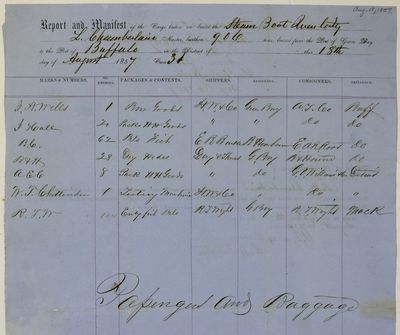 Aug. 18, 1857
Report and Manifest of the Cargo laden on board the Steam Boat Queen City
L. Chamberlain Master, burthen 906 tons, bound from the Port of Green Bay
to the Port of Buffalo in the District of this 18th
day of August 1857
MARKS & NUMBERS. PACKAGES & CONTENTS. SHIPPERS. RESIDENCE. CONSIGNEES. RESIDENCE.
J. H. Wells 1 Box Goods H.W. & Co Green Bay A. T. Co Buff
J. Hale 20 Packs H H Goods " " do do
B.C. 62 Bbls Fish do
B & H 28 Dry Hides G. Bay B & Hound do
A.E.C 8 Pack H H Goods " do Detroit
W. T. Chittenden 1 Machine H.W. & Co " do "
R. T. W 100 Empty fish Bbls R. T. Wright G. Bay R. T. Wright Mack
Passengers and Baggage